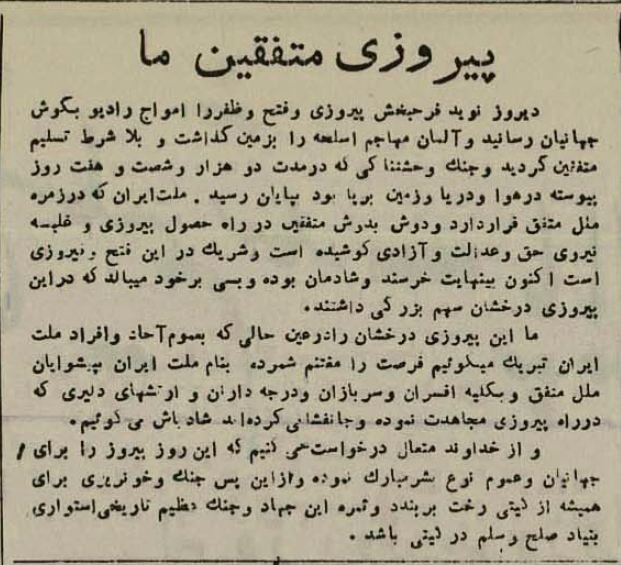 پیروزی متفقین ما
دیروز نوید فرحبخش پیروزی وفتح وظفررا امواج رادیو بگوش
جهانیان رسانید وآلمان مهاجم اسلحه را بزمین گذاشت و بلا شرط تسلیم
متفقین گردید وجنك وحشتناکی که درمدت دو هزار وشصت و هفت روز
پیوسته درهوا ودریا وزمین برپا بود بپایان رسید . ملت‌ایران که درزمره
ملل متفق قراردارد ودوش بدوش متفقین در راه حصول پیروزی و غلبه
نیروی حق وعدالت وآزادی کوشیده است وشریك در این فتح وفیروزی
است اکنون بینهایت خرسند وشادمان بوده وبسی برخود میبالد که دراین
پیروزی درخشان سهم بزرگی داشتند.
ما این پیروزی درخشان رادرعین حالی که بعموم‌آحاد وافراد ملت
ایران تبریك میگوئیم فرصت را مغتنم شمرده بنام ملت ایران بپیشوایان
ملل متفق وبکلیه افسران وسربازان ودرجه داران و ارتشهای دلیری که
درراه پیروزی مجاهدت نموده وجانفشانی‌کرده‌اند شادباش می گوئیم.
و از خداوند متعال درخواست‌می کنیم که این روز پیروز را برای
جهانیان وعموم نوع بشرمبارك نموده وازاین پس جنك وخونریزی برای
همیشه از گیتی رخت بربندد وثمره این جهاد وجنك عظیم تاریخی‌استواری
بنیاد صلح وسلم در گیتی باشد .